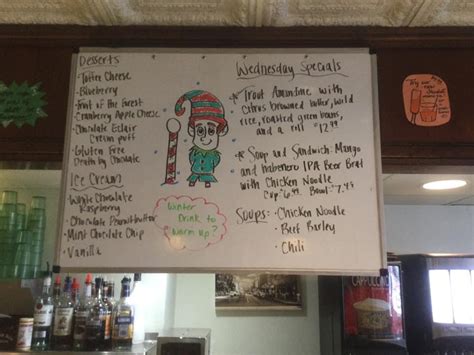 Desserts
- Toffee Cheese
- Blueberry
- Fruit of the Forest
- Cranberry Apple Cheese
- Chocolate Eclair
Cream puff
- Gluten Free
Death by Chocolate
Ice Cream
- White Chocolate
Raspberry
- Chocolate Peanutbutter
- Mint Chocolate Chip
- Vanilla
Winter
Drink to
Warm up?
Wednesday Specials
Trout Amandine with
citrus browned butter, wild
rice, roasted green beans,
and a roll
Soup and Sandwich: Mango
and habenero IPA Beer Brat
with Chicken Noodle
Cup Bowl
Soups: - Chicken Noodle
- Beef Barley
- Chili
Try our
CAPPUCCINO